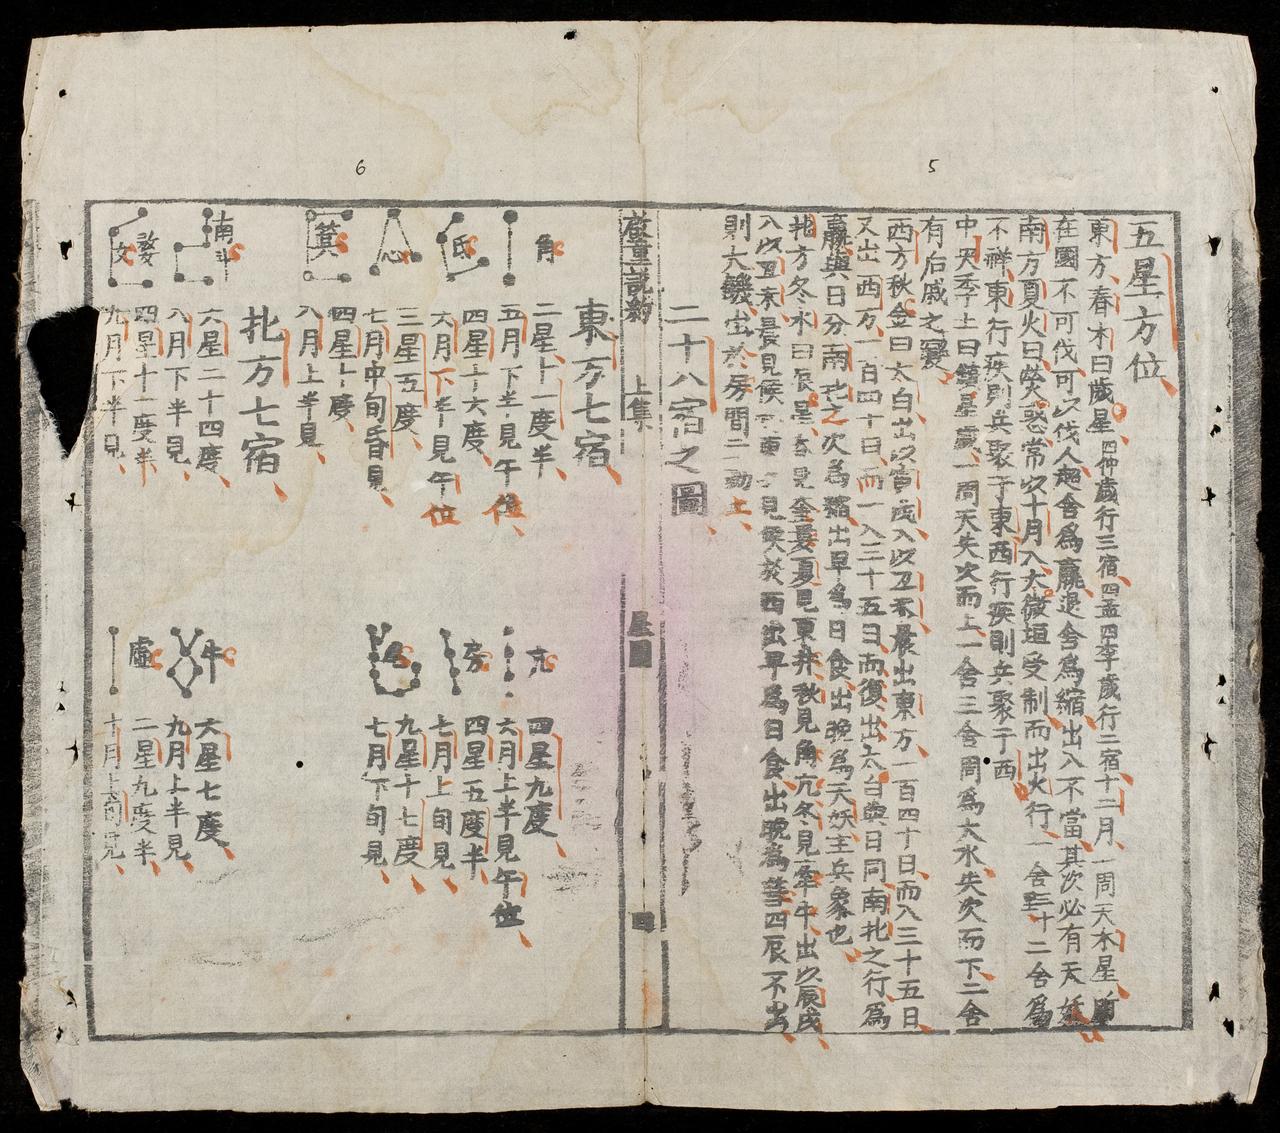 5
五星方位
東方春木曰歲星四仲歲行三宿四孟四季歲行二宿十二月一周天木星所
在國不可伐可以伐人趨舍爲贏退舍爲縮出入不當其次必有天妖
南方夏火曰熒惑常以十月入太微垣受制而出火行一舍二十二舍爲
不祥東行疾則兵聚于東西行疾則兵聚于西
中央季土曰鎮星歲一周天失次而上一舍三舍周爲大水失次而下二舍
有后戚之變
西方秋金曰太白出以寅戌入以丑未晨出東方一百四十日而入三十五日
又出西方一百四十日而一入三十五日而復出太白與日同南北之行爲
贏與日分南北之次爲縮出早爲日食出晚爲天妖主兵象也
北方冬水曰辰星春見奎婁夏見東井秋見角亢冬見牽牛出以辰戌
入以丑未晨見候東方見候於西出早爲日食出晚爲彗四辰不出
則大饑出於房間二動土
二十八宿之圖
啟童說約 上集 星圖 四
6
東方七宿
角
二星十一度半
五月下半見午位
亢
四星九度
六月上半見午位
氐
四星十六度
六月下半見午位
房
四星五度半
七月上旬見
心
三星五度
七月中旬昏見
尾
九星十七度
七月下旬見
箕
四星十度
八月上半見
北方七宿
南斗
六星二十四度
八月下半見
牛
六星七度
九月上半見
婺女
四星十一度半
九月下半見
虛
二星九度半
十月上旬見